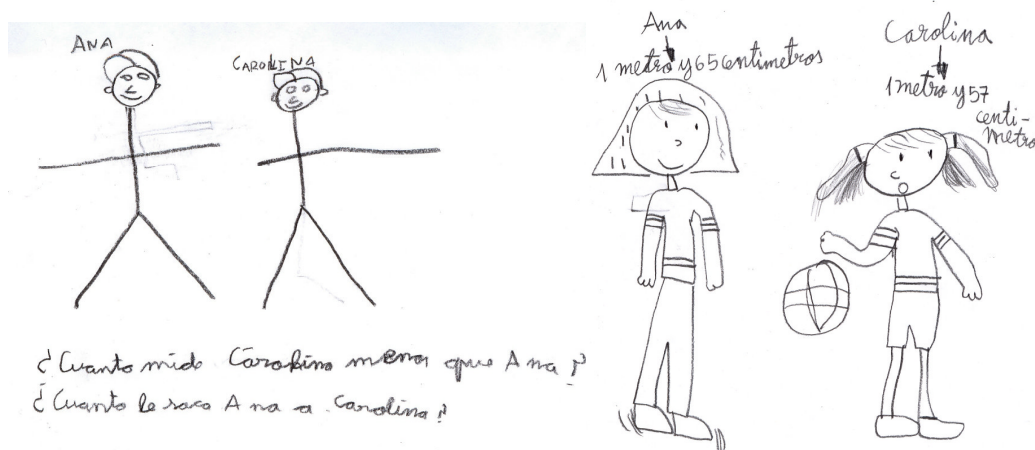 ANA
CAROLINA
¿Cuanto mide Carolina menos que Ana?
¿Cuanto le saca Ana a Carolina?
Ana
1 metro y 65 centimetros
Carolina
1 metro y 57
centi-
metro